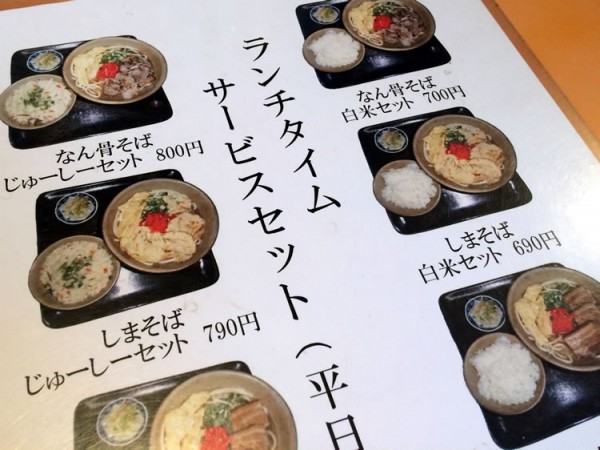 ランチタイム
サービスセット（平日
なん骨そば
じゅーしーセット 800円
しまそば
じゅーしーセット 790円
なん骨そば
白米セット 700円
しまそば
白米セット 690円